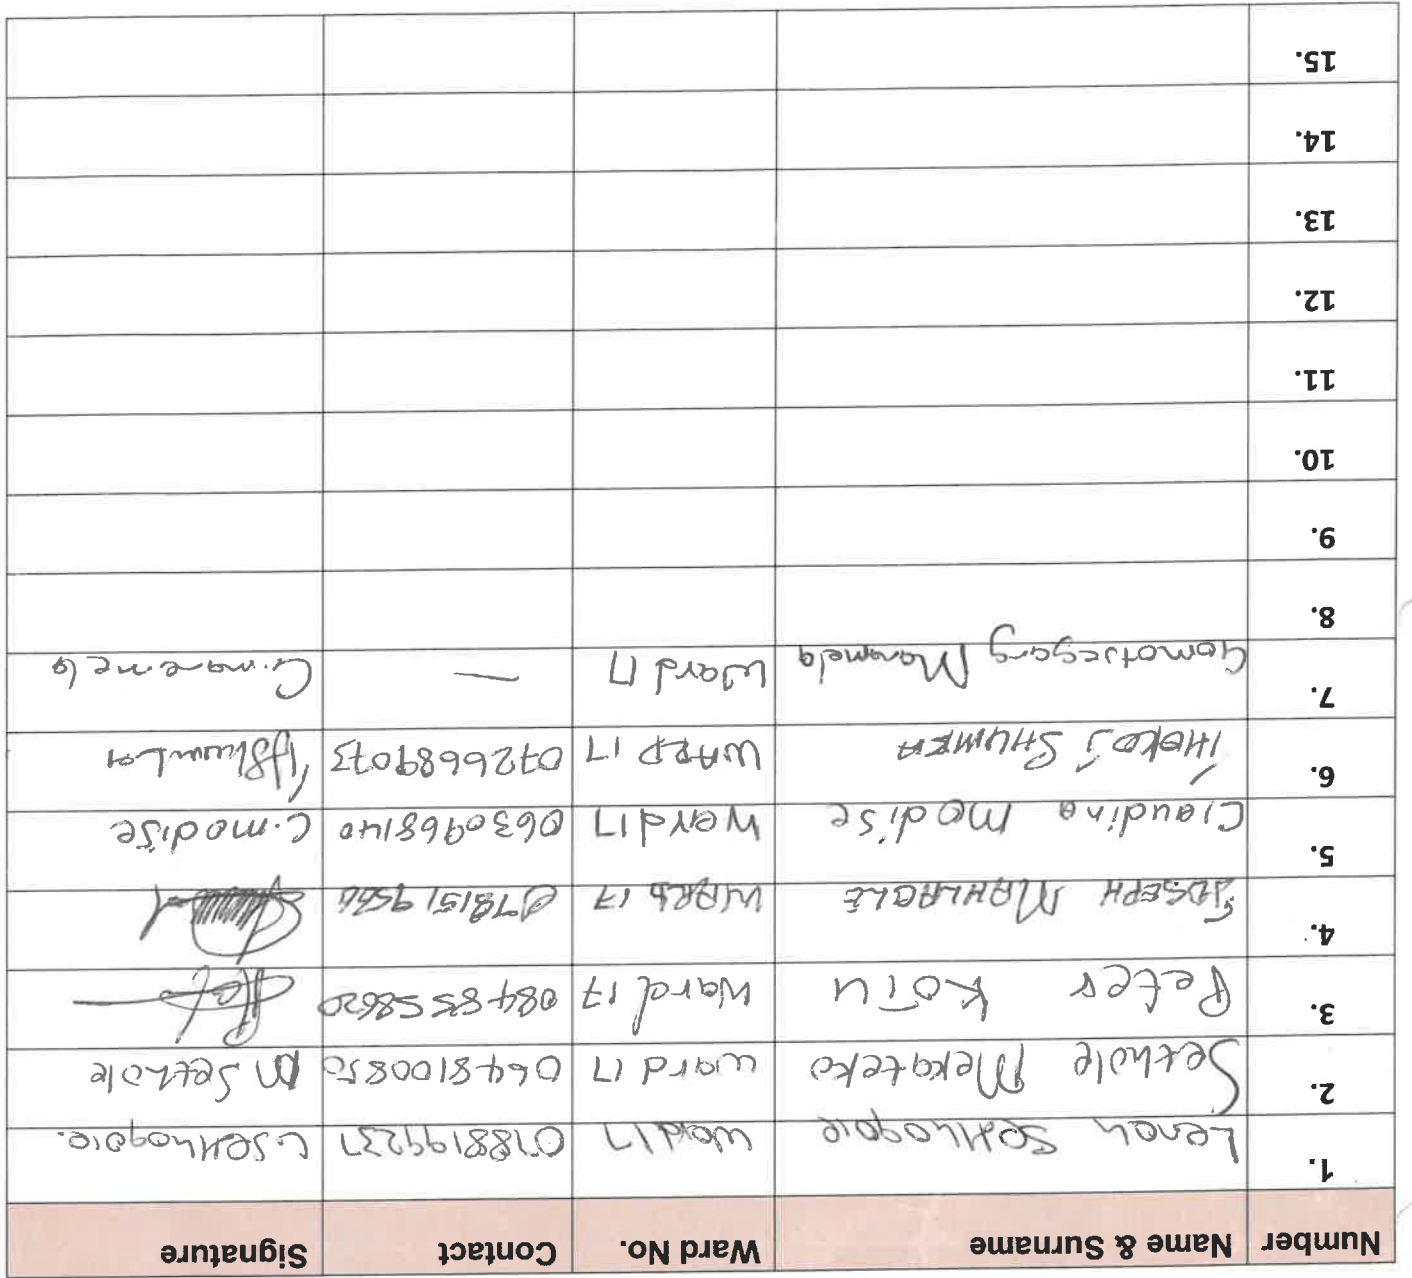 Number Name & Surname Ward No. Contact Signature
1. Lenah Sekhogole Ward 17 0788199237
2. Sethole Mekateko Ward 17 0648100850 M Sethole
3. Peter KOTU Ward 17 0848558620
4. JOSEPH MAHLAOLE WARD 17 0781519566
5. Claudina Modise Ward 17 0630968140 C.modise
6. THOKO J SHUMBA WARD 17 0726689073 TJShumba
7. Gomotsegang Maramela Ward 17 — G.maremela
8.
9.
10.
11.
12.
13.
14.
15.